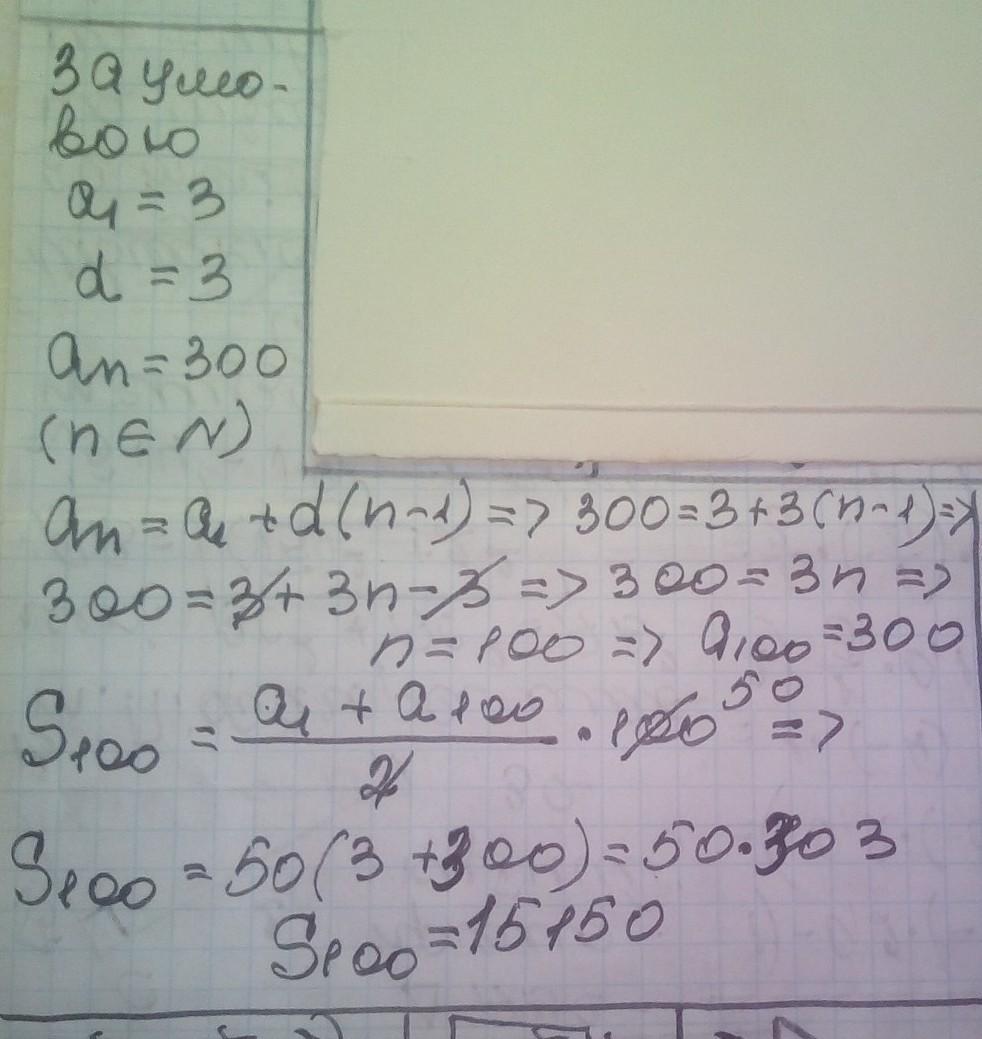 За умо-
вою
a₁ = 3
d = 3
aₙ = 300
(n ∈ N)
aₙ = a₁ + d(n-1) => 300 = 3 + 3(n-1) =>
300 = 3 + 3n - 3 => 300 = 3n =>
n = 100 => a₁₀₀ = 300
S₁₀₀ = (a₁ + a₁₀₀)/2 · 100 50 =>
S₁₀₀ = 50(3 + 300) = 50·303
S₁₀₀ = 15150